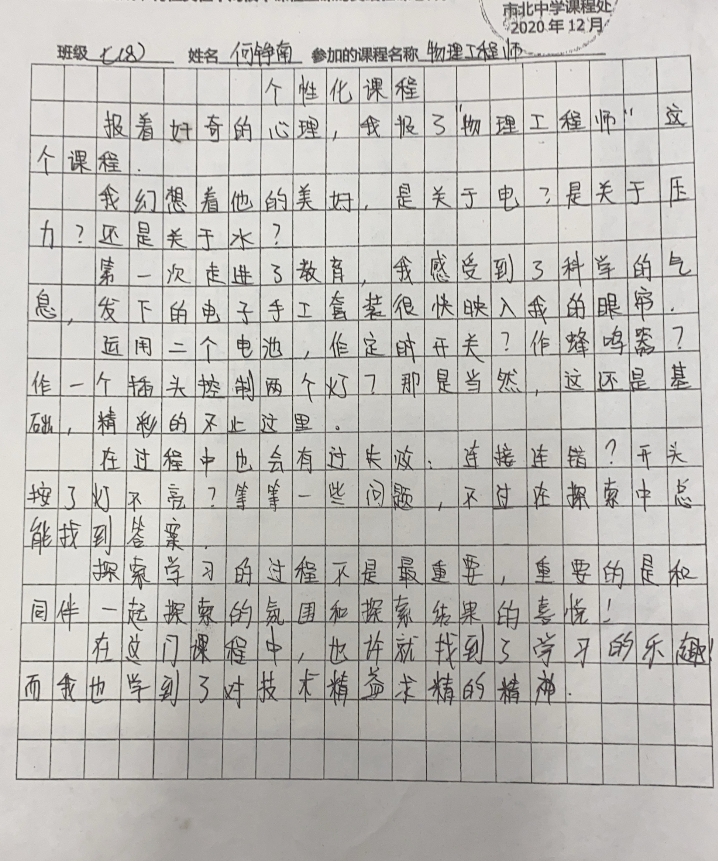 市北中学课程处
2020年12月
班级 七(8) 姓名 何铮南 参加的课程名称 物理工程师
个性化课程
报着好奇的心理，我报了"物理工程师"这
个课程.
我幻想着他的美好，是关于电？是关于压
力？还是关于水？
第一次走进了教育，我感受到了科学的气
息，发下的电子手工套装很快映入我的眼帘.
运用二个电池，作定时开关？作蜂鸣器？
作一个插头控制两个灯？那是当然，这还是基
础，精彩的不止这里。
在过程中也会有过失败：连接连错？开关
按了灯不亮？等等一些问题，不过在探索中总
能找到答案.
探索学习的过程不是最重要，重要的是和
同伴一起探索的氛围和探索结果的喜悦！
在这门课程中，也许就找到了学习的乐趣！
而我也学到了对技术精益求精的精神.